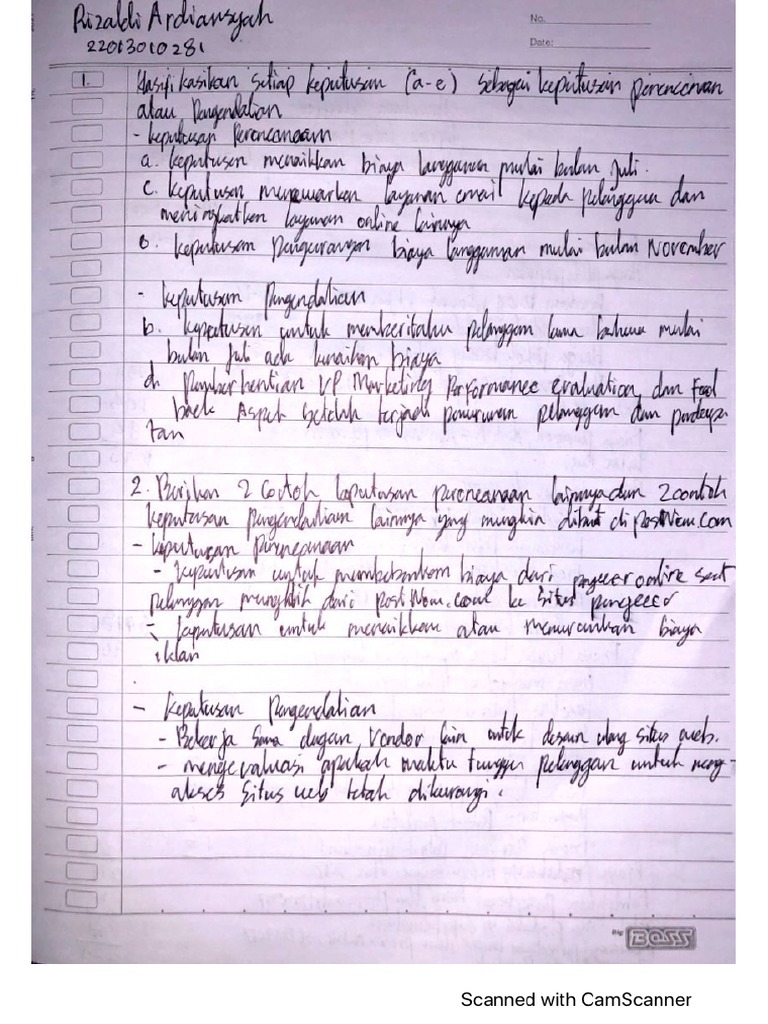 Rizaldi Ardiansyah
22013010281
No.
Date:
1. Klasifikasikan setiap keputusan (a-e) sebagai keputusan perencanaan
atau Pengendalian
- keputusan Perencanaan
a. keputusan menaikkan biaya langganan mulai bulan Juli.
c. keputusan menawarkan layanan email kepada pelanggan dan
meningkatkan layanan online lainnya
e. keputusan pengurangan biaya langganan mulai bulan November
- keputusan Pengendalian
b. keputusan untuk memberitahu pelanggan lama bahwa mulai
bulan Juli ada kenaikan biaya
d. Pemberhentian VP Marketing Performance evaluation, dan feed
back Aspek setelah terjadi penurunan pelanggan dan pendapa
tan
2. Berikan 2 Contoh keputusan perencanaan lainnya dan 2 contoh
keputusan pengendalian lainnya yang mungkin dibuat di PostNews.com
- keputusan Perencanaan
- keputusan untuk membebankan biaya dari pengecer online saat
pelanggan mengklik dari PostNews.com ke situs pengecer
- keputusan untuk menaikkan atau menurunkan biaya
iklan
- keputusan Pengendalian
- Bekerja sama dengan vendor lain untuk desain ulang situs web.
- mengevaluasi apakah waktu tunggu pelanggan untuk meng-
akses situs web telah dikurangi.
Big BOSS
Scanned with CamScanner